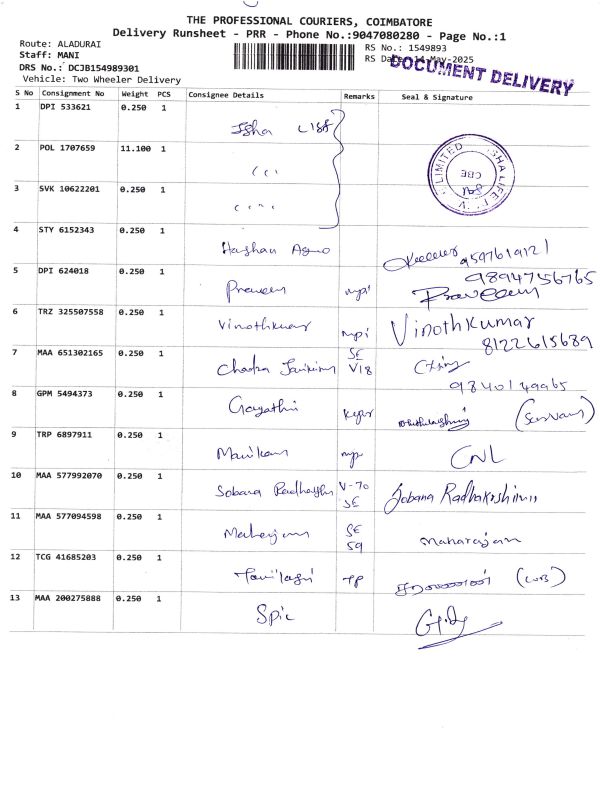 THE PROFESSIONAL COURIERS, COIMBATORE
Delivery Runsheet - PRR - Phone No.:9047080280 - Page No.:1
Route: ALADURAI
Staff: MANI
DRS No.: DCJB154989301
Vehicle: Two Wheeler Delivery
RS No.: 1549893
RS Date: 14-May-2025
DOCUMENT DELIVERY
S No Consignment No Weight PCS Consignee Details Remarks Seal & Signature
1 DPI 533621 0.250 1 Isha Life
2 POL 1707659 11.100 1
3 SVK 10622201 0.250 1
LIMITED CBE
4 STY 6152343 0.250 1 Harshan Agro 9597619121
5 DPI 624018 0.250 1 Praveen 9894756765
Praveen
6 TRZ 325507558 0.250 1 Vinothkumar Vinothkumar
8122615689
7 MAA 651302165 0.250 1 SE V18
9840149965
8 GPM 5494373 0.250 1 Gayathri
9 TRP 6897911 0.250 1 Manikam CNL
10 MAA 577992070 0.250 1 Sobana Radhakrishn V-70 SE Sobana Radhakrishnan
11 MAA 577094598 0.250 1 Maharajan SE 59 Maharajan
12 TCG 41685203 0.250 1 சரவணன்
13 MAA 200275888 0.250 1 Spic